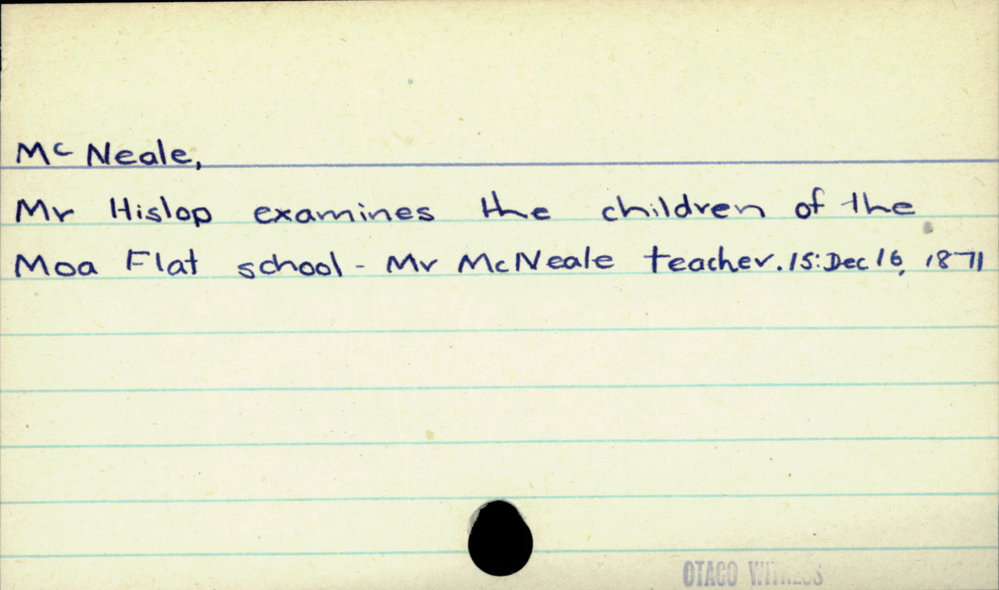 Mc Neale,
Mr Hislop examines the children of the
Moa Flat school - Mr McNeale teacher. 15: Dec 16, 1871
OTAGO WITNESS